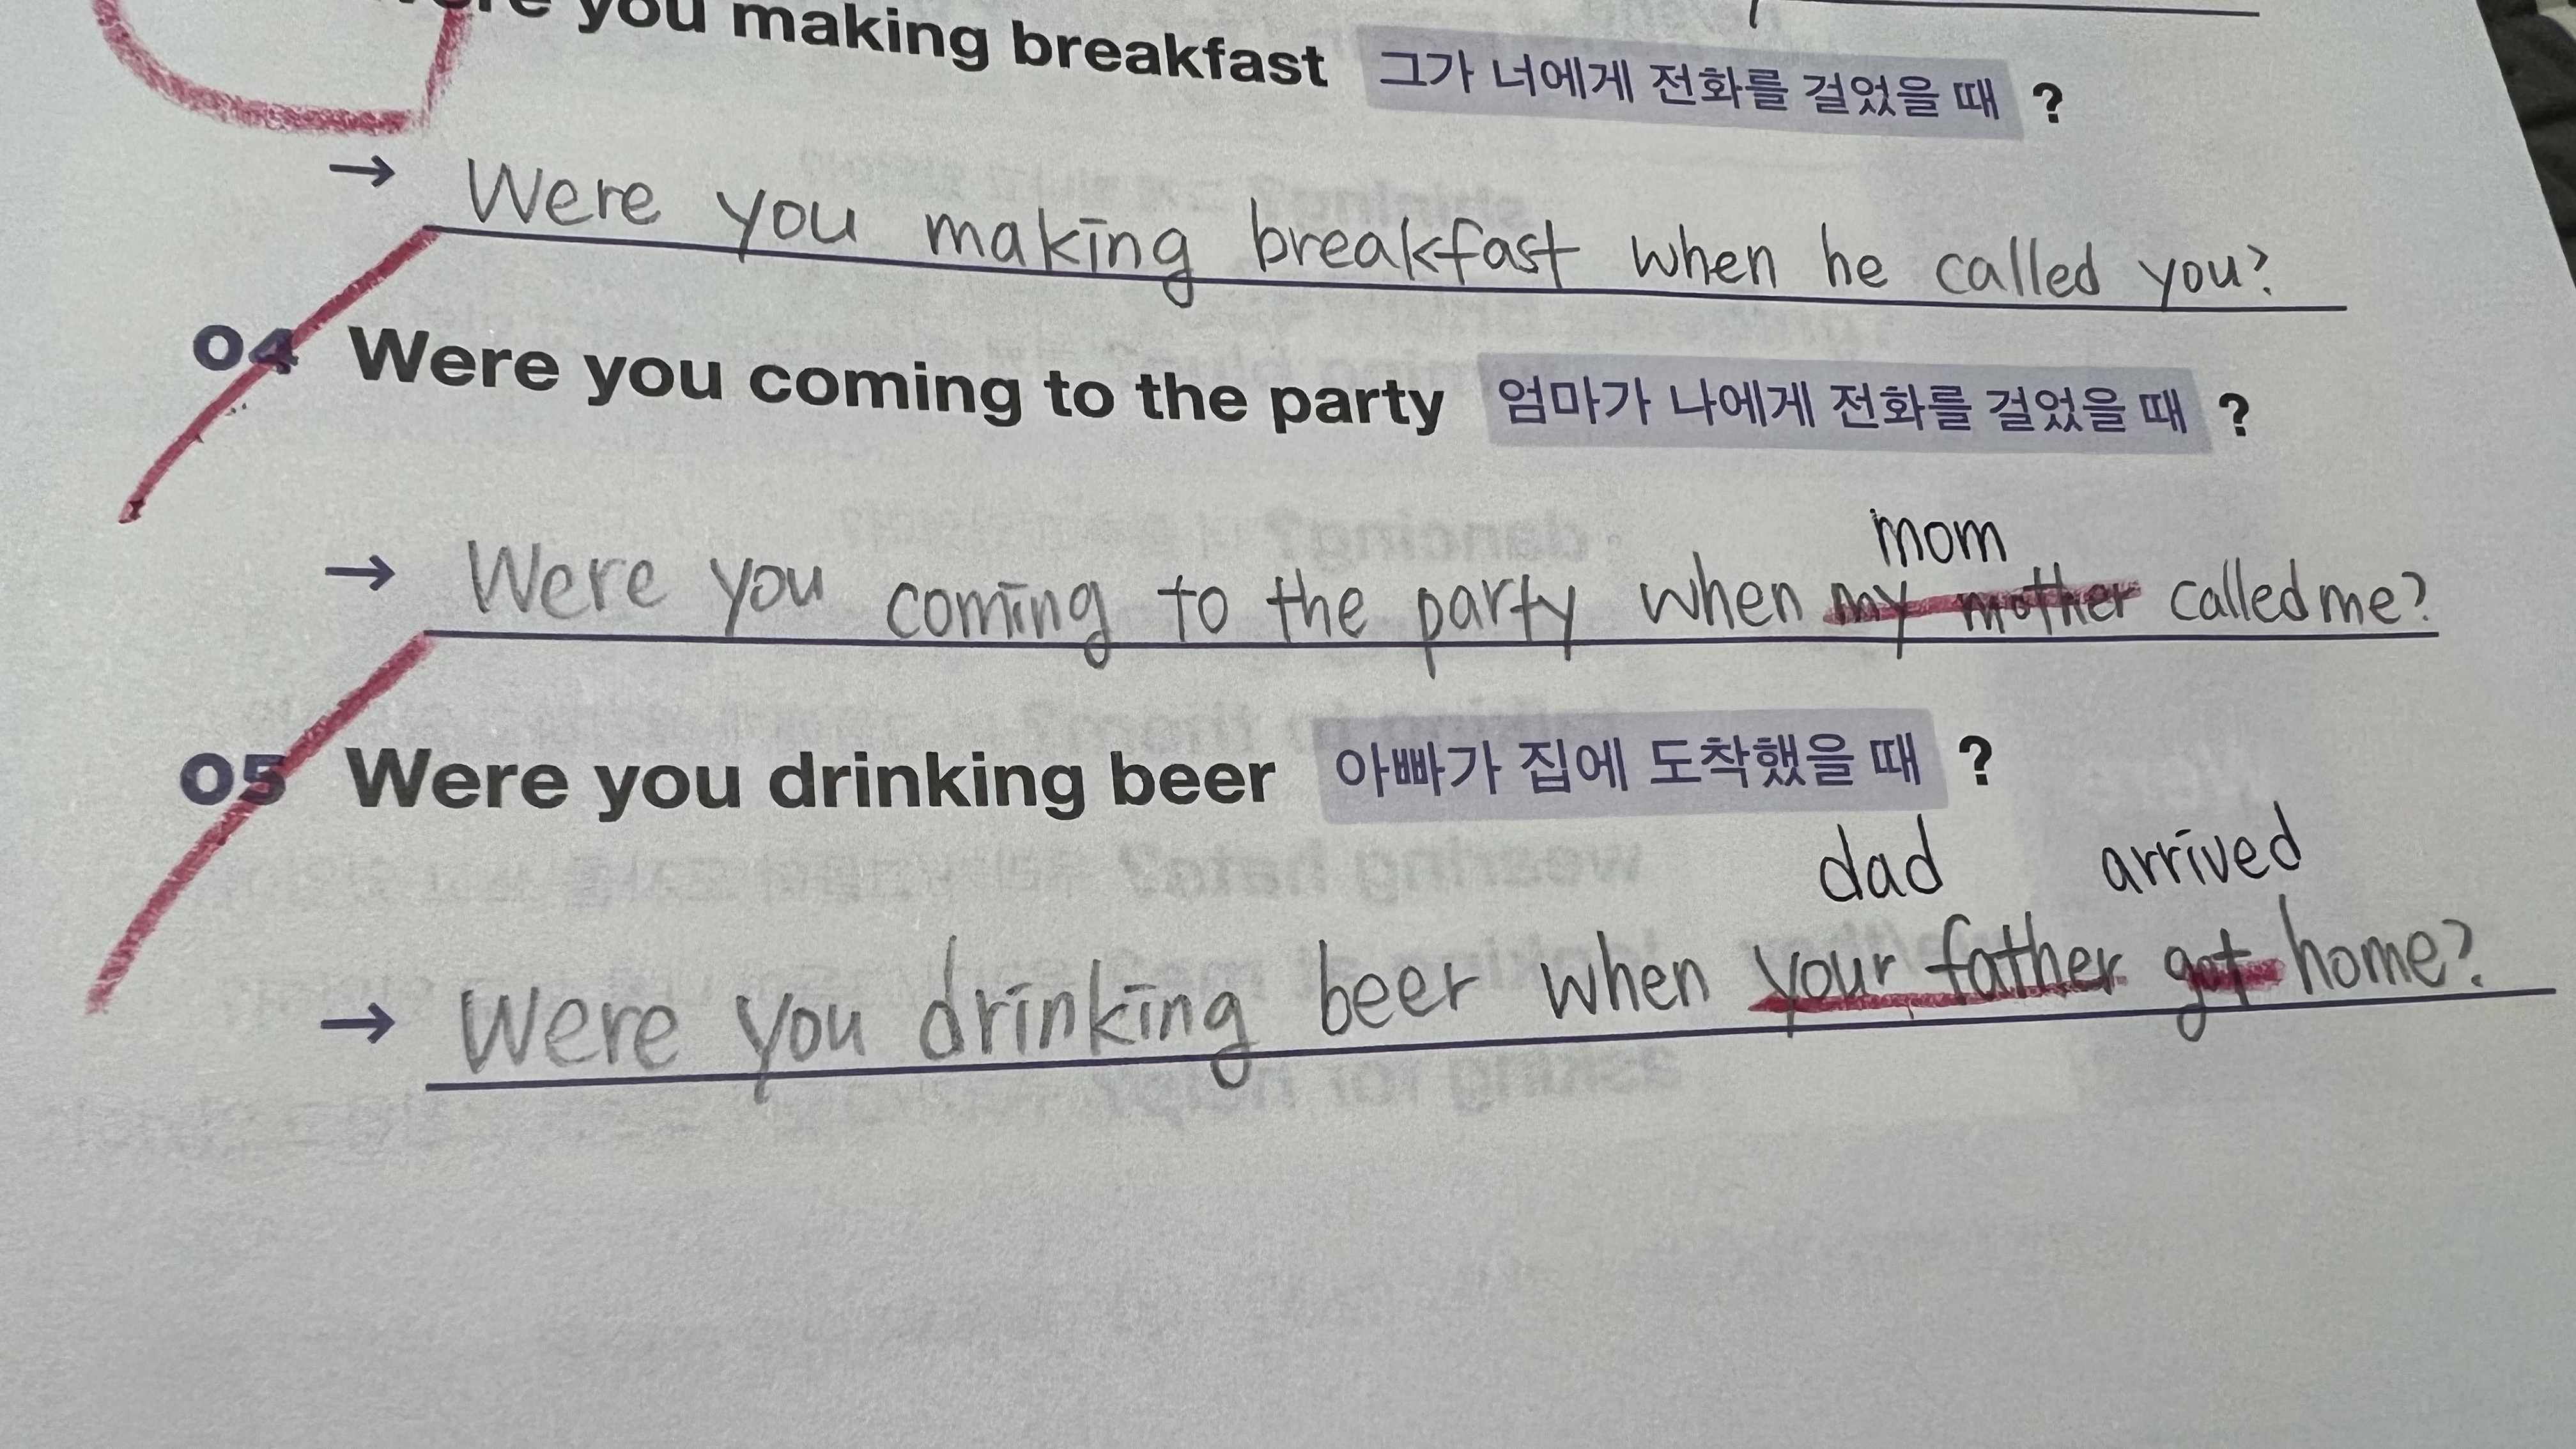 you making breakfast 그가 너에게 전화를 걸었을 때 ?
→ Were you making breakfast when he called you?
04 Were you coming to the party 엄마가 나에게 전화를 걸었을 때 ?
mom
→ Were you coming to the party when my mother called me?
05 Were you drinking beer 아빠가 집에 도착했을 때 ?
dad arrived
→ Were you drinking beer when your father got home?